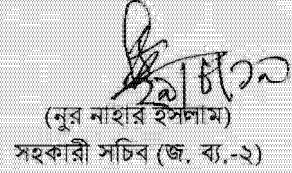 (নুর নাহার ইসলাম)
সহকারী সচিব (জ. ব্য.-২)